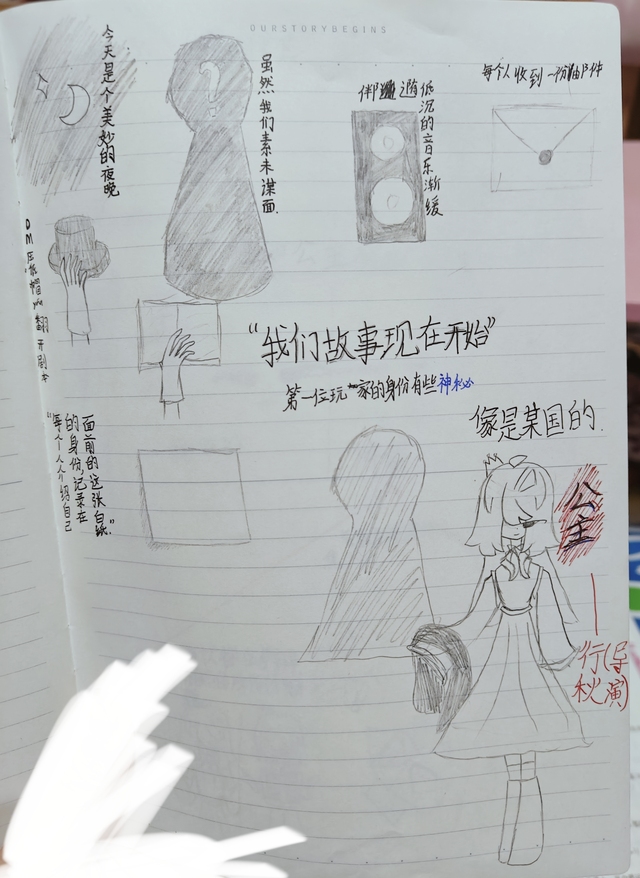 OURSTORYBEGINS
今天是个美妙的夜晚
虽然我们素未谋面.
伴随
低沉的音乐渐缓
每个人收到一份邮件
DM压低帽
翻开剧本
"我们故事现在开始"
第一位玩家的身份有些神秘
像是某国的.
公主
面前的这张白纸."
的身份,记录在
"每个人介绍自己
行秋
(导演)